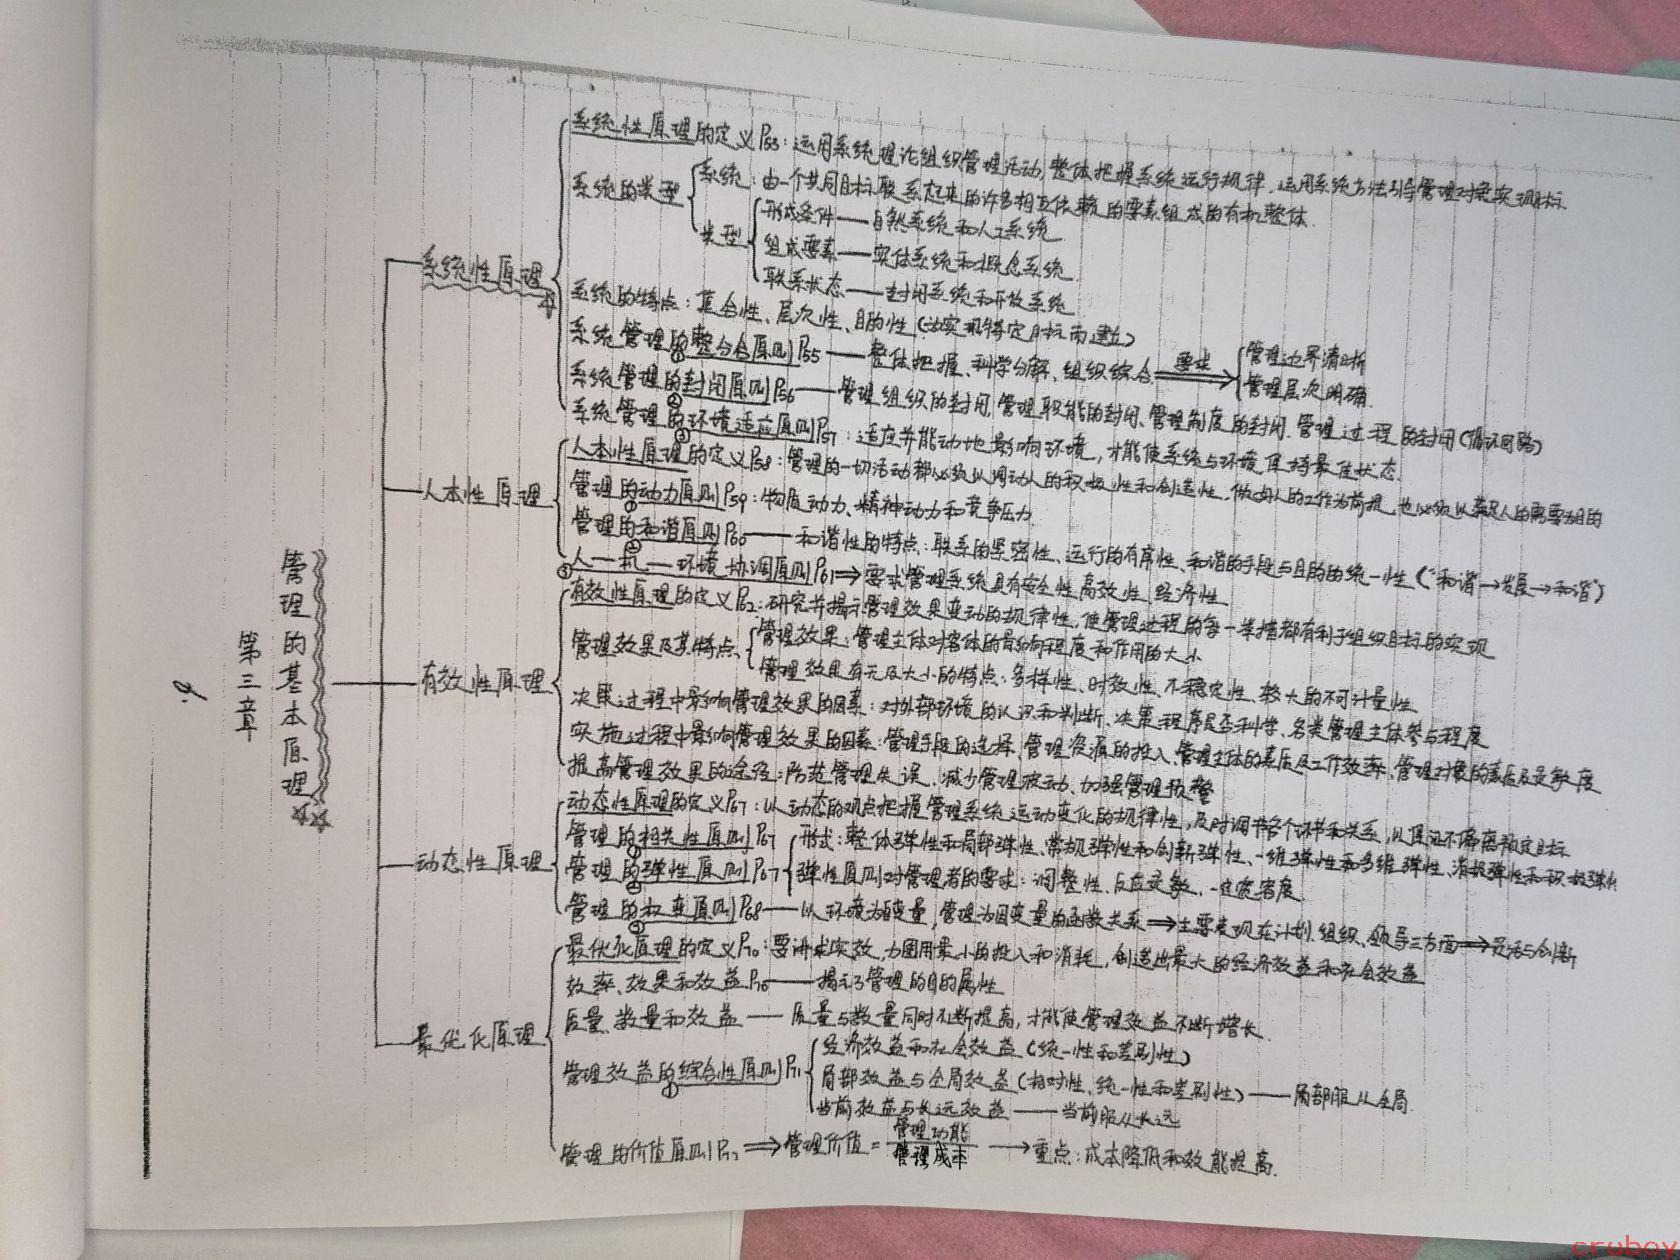 第三章
管理的基本原理
系统性原理
系统性原理的定义P53：运用系统理论组织管理活动，整体把握系统运行规律，运用系统方法引导管理对象实现目标
系统的类型
系统：由一个共同目标联系起来的许多相互依赖的要素组成的有机整体
类型
形成条件——自然系统和人工系统
组成要素——实体系统和概念系统
联系状态——封闭系统和开放系统
系统的特点：集合性、层次性、目的性（为实现特定目标而建立）
系统管理的整分合原则P55——整体把握、科学分解、组织综合 要求
①
管理边界清晰
管理层次明确
系统管理的封闭原则P56——管理组织的封闭、管理职能的封闭、管理制度的封闭、管理过程的封闭（循环回路）
②
系统管理的环境适应原则P57：适应并能动地影响环境，才能使系统与环境保持最佳状态
③
人本性原理
人本性原理的定义P58：管理的一切活动都必须以调动人的积极性和创造性，做好人的工作为前提，也必须以满足人的需要为目的
管理的动力原则P59：物质动力、精神动力和竞争压力
①
管理的和谐原则P60——和谐性的特点：联系的紧密性、运行的有序性、和谐的手段与目的的统一性（“和谐→发展→和谐”）
②
③人—机—环境协调原则P61⇒要求管理系统具有安全性、高效性、经济性
有效性原理
有效性原理的定义P62：研究并揭示管理效果变动的规律性，使管理过程的每一举措都有利于组织目标的实现
管理效果及其特点
管理效果：管理主体对客体的影响程度和作用的大小
管理效果有无及大小的特点：多样性、时效性、不稳定性、较大的不可计量性
决策过程中影响管理效果的因素：对外部环境的认识和判断、决策程序是否科学、各类管理主体参与程度
实施过程中影响管理效果的因素：管理手段的选择、管理资源的投入、管理主体的素质及工作效率、管理对象的素质及灵敏度
提高管理效果的途径：防范管理失误、减少管理波动、加强管理预警
动态性原理
动态性原理的定义P67：以动态的观点把握管理系统运动变化的规律性，及时调节各个环节和关系，以保证不偏离预定目标
管理的相关性原则P67
①
管理的弹性原则P67
②
形式：整体弹性和局部弹性、常规弹性和创新弹性、一维弹性和多维弹性、消极弹性和积极弹性
弹性原则对管理者的要求：调整性、反应灵敏、一定宽容度
管理的权变原则P68——以环境为自变量，管理为因变量的函数关系⇒主要表现在计划、组织、领导三方面⇒灵活与创新
③
最优化原理
最优化原理的定义P70：要讲求实效，力图用最小的投入和消耗，创造出最大的经济效益和社会效益
效率、效果和效益P70——揭示了管理的目的属性
质量、数量和效益——质量与数量同时不断提高，才能使管理效益不断增长
管理效益的综合性原则P71
①
经济效益和社会效益（统一性和差别性）
局部效益与全局效益（相对性、统一性和差别性）——局部服从全局
当前效益与长远效益——当前服从长远
管理的价值原则P72⇒管理价值=管理功能/管理成本→重点：成本降低和效能提高